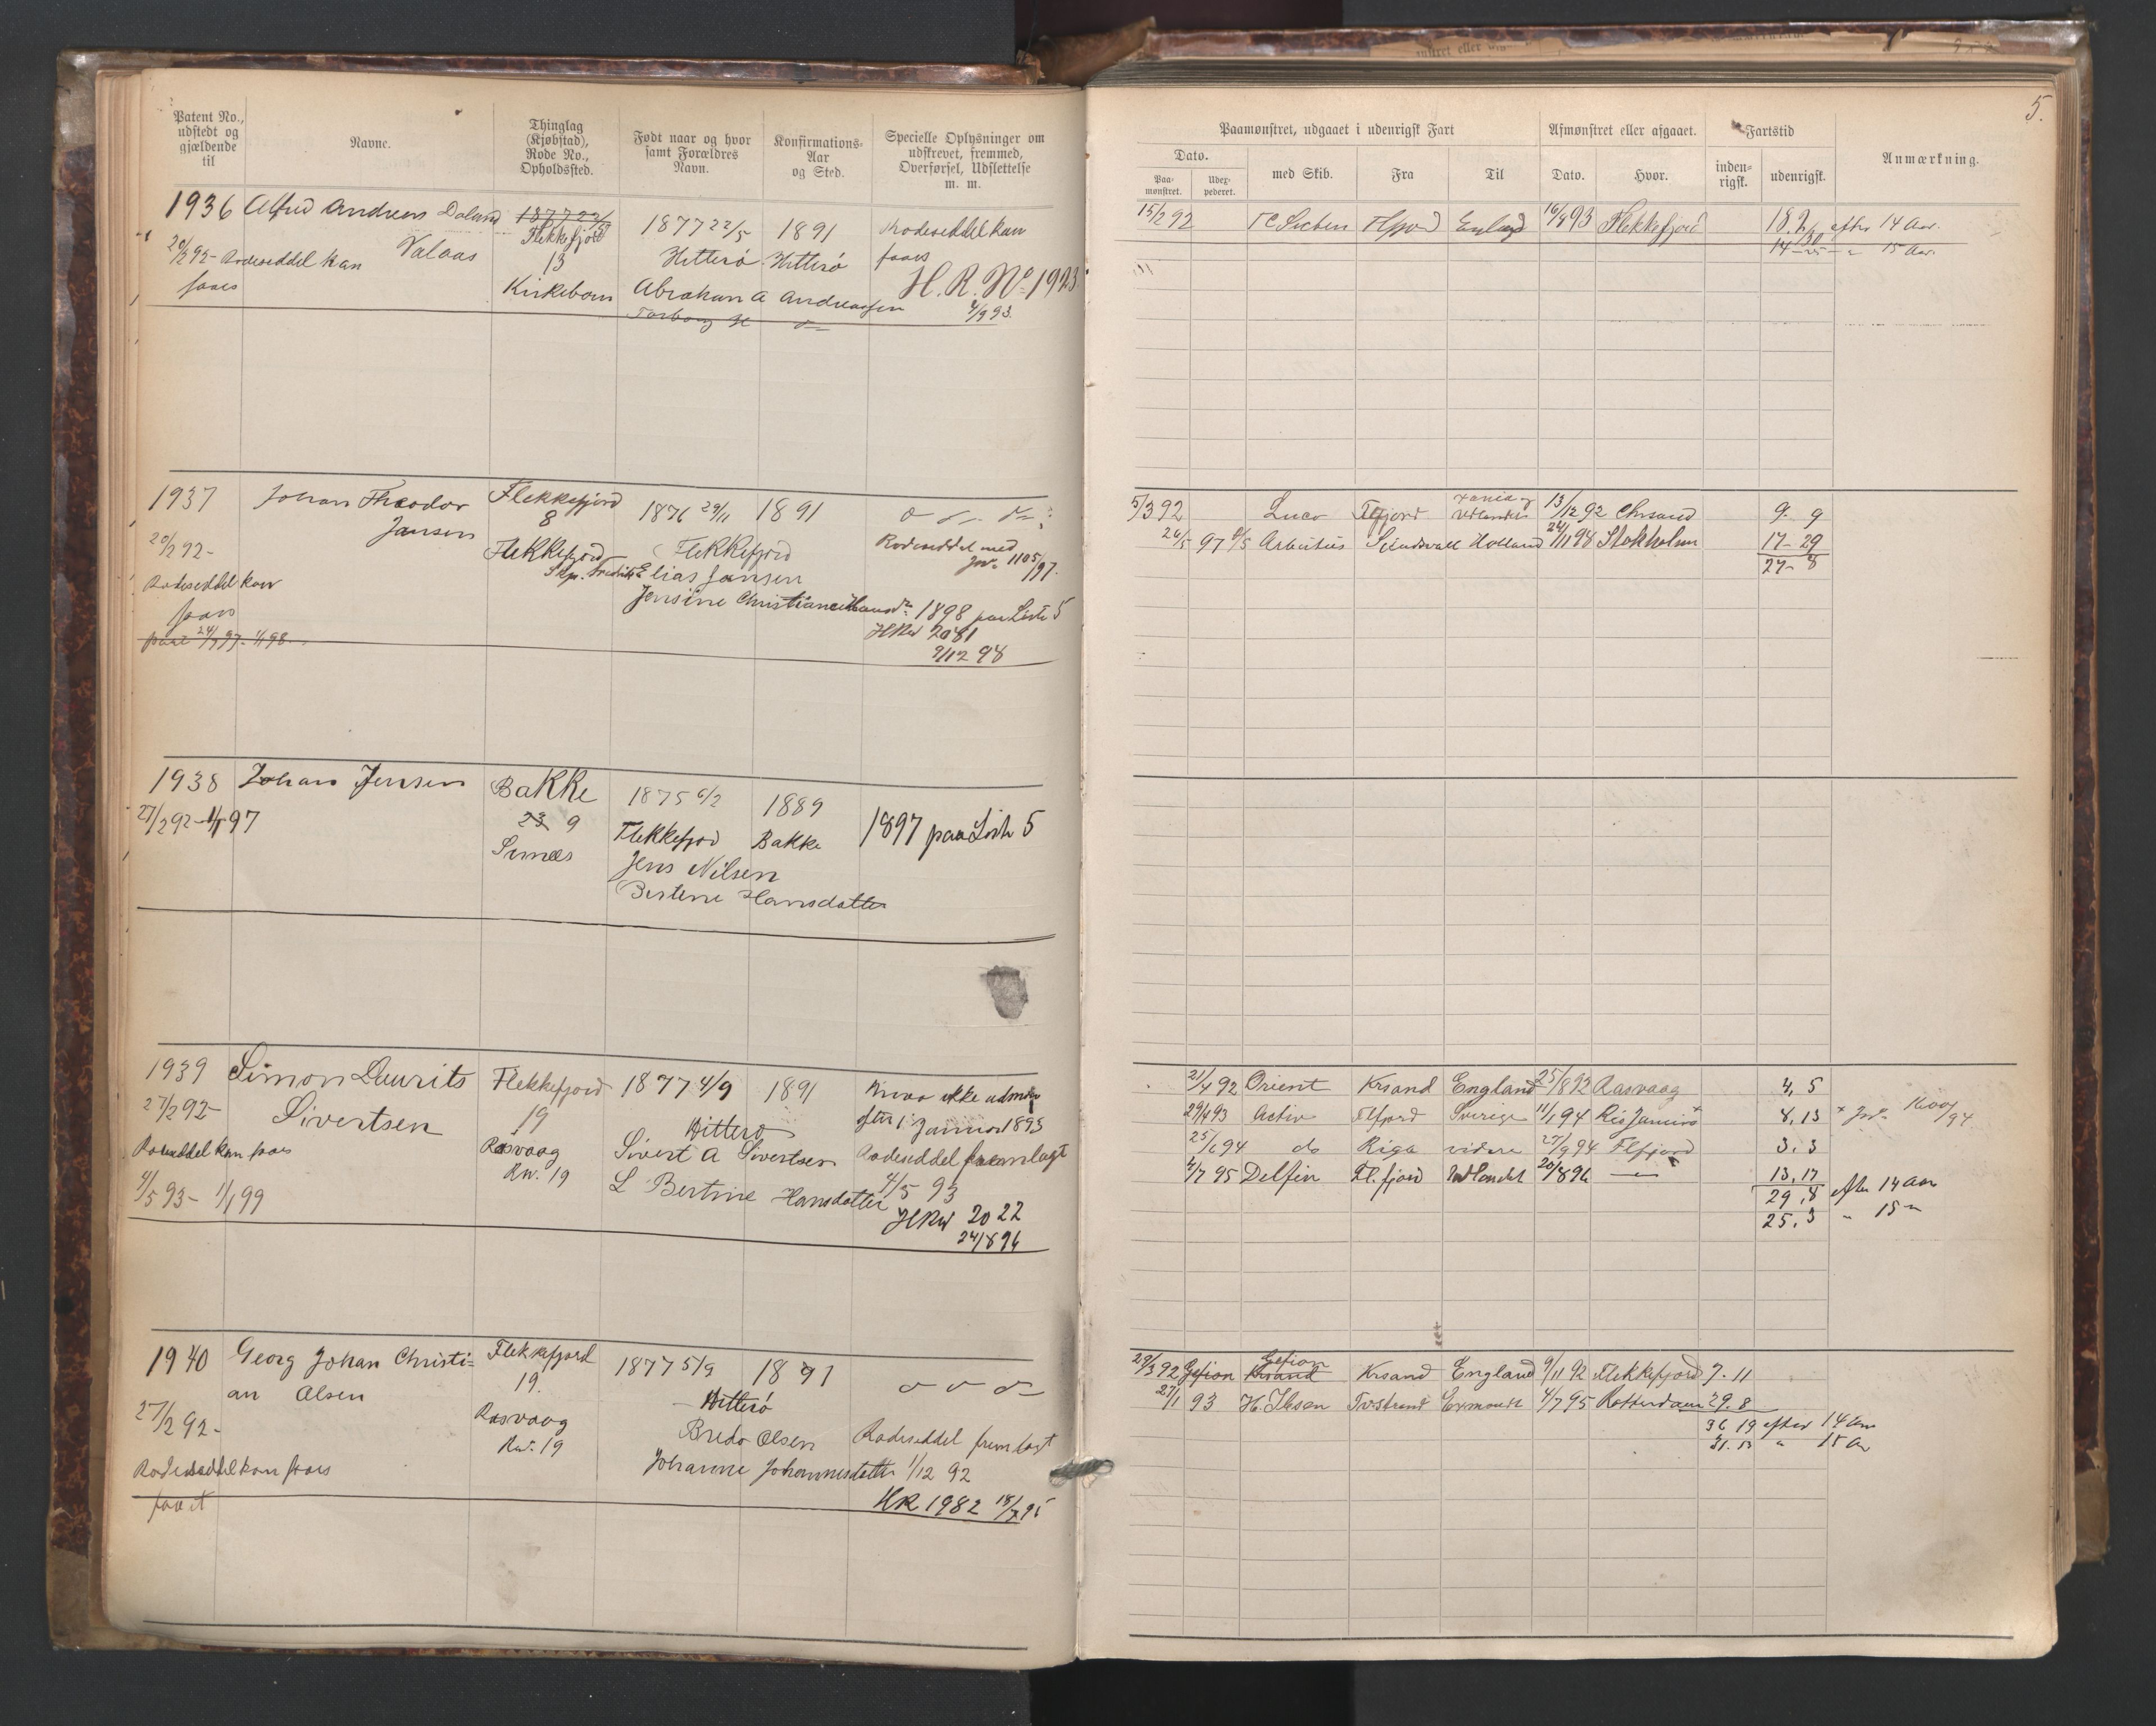 Patent No.,
udstedt og
gjældende
til
Navne.
Thinglag
(Kjøbstad),
Rode No.,
Opholdssted.
Født naar og hvor
samt Forældres
Navn.
Konfirmations-
Aar
og Sted.
Specielle Oplysninger om
udskrevet, fremmed,
Overførsel, Udslettelse
m. m.
1936 Alfred Andreas Daland
Valaas
20/2 92- Rodeseddel kan
faaes
1877 22/5
Flekkefjord
13
Kirkebom
1877 22/5
Hitterø
Abraham A Andreassen
Torborg
1891
Hitterø
Rodeseddel kan
faaes
H. R. No 1923
4/9 93.
1937
20/2 92-
Rodeseddel kan
faaes
Johan Theodor
Jansen
Flekkefjord
8
Flekkefjord
1876 29/11
Flekkefjord
Elias Jansen
Jensine Christiane
1891
Rodeseddel med
Jno 1105/97.
1898 paa Liste 5
HRN 2081
9/12 98
1938
27/2 92-1/1 97
Johan Jensen
Bakke
23 9
Sirnæs
1875 6/2
Flekkefjord
Jens Nilsen
Bertine Hansdatter
1889
Bakke
1897 paa Liste 5
1939
27/2 92-
Rodeseddel kan faaes
4/5 93- 1/1 99
Simon Laurits
Sivertsen
Flekkefjord
19
Rasvaag
Rn. 19
1877 4/9
Hitterø
Sivert A Sivertsen
L Bertine Hansdatter
1891
ikke
1 Januar 1893
Rodeseddel fremlagt
4/5 93
HRN 2022
24/8 96
1940
27/2 92-
Rodeseddel kan faaes
faaet
Georg Johan Christi=
an Olsen
Flekkefjord
19.
Rasvaag
Rn. 19
1877 5/9
Hitterø
Bredo Olsen
Johanne Johannesdatter
1891
Rodeseddel fremlagt
1/12 92
HR 1982 18/7 95
5.
Paamønstret, udgaaet i udenrigsk Fart
Afmønstret eller afgaaet.
Fartstid
Anmærkning.
Dato.
Paa-
mønstret.
Udex-
pederet.
med Skib.
Fra
Til
Dato.
Hvor.
inden-
rigsk.
udenrigsk.
15/2 92 England 16/4 93 Flekkefjord 18.2 efter 14 Aar.
15 Aar.
5/3 92 Luco Flfjord Udlandet 13/12 92 Chrsand 9- 9
26/5 97 Arbutus Sundsvall Holland 24/11 98 Stokholm 17- 29
27- 8
21/4 92 Orient Krsand England 25/8 92 Rasvaag 4, 5
29/4 93 Activ Flfjord Sverige 11/1 94 Rio Janeiro 8, 13 × Jno 1600/94
25/1 94 do Riga videre 27/9 94 Flfjord 3. 3
2/7 95 Delfin Fl.fjord Udlandet 20/8 96 — 13, 17
29, 8 efter 14 Aar
25, 3 " 15 "
29/3 92 Gefion Krsand Gefion Krsand England 9/11 92 Flekkefjord 7. 11
27/1 93 H. Ibsen Tvestrand Exmouth 4/7 95 Rotterdam 29. 8
36 19 efter 14 Aar
31. 13 " 15 Aar